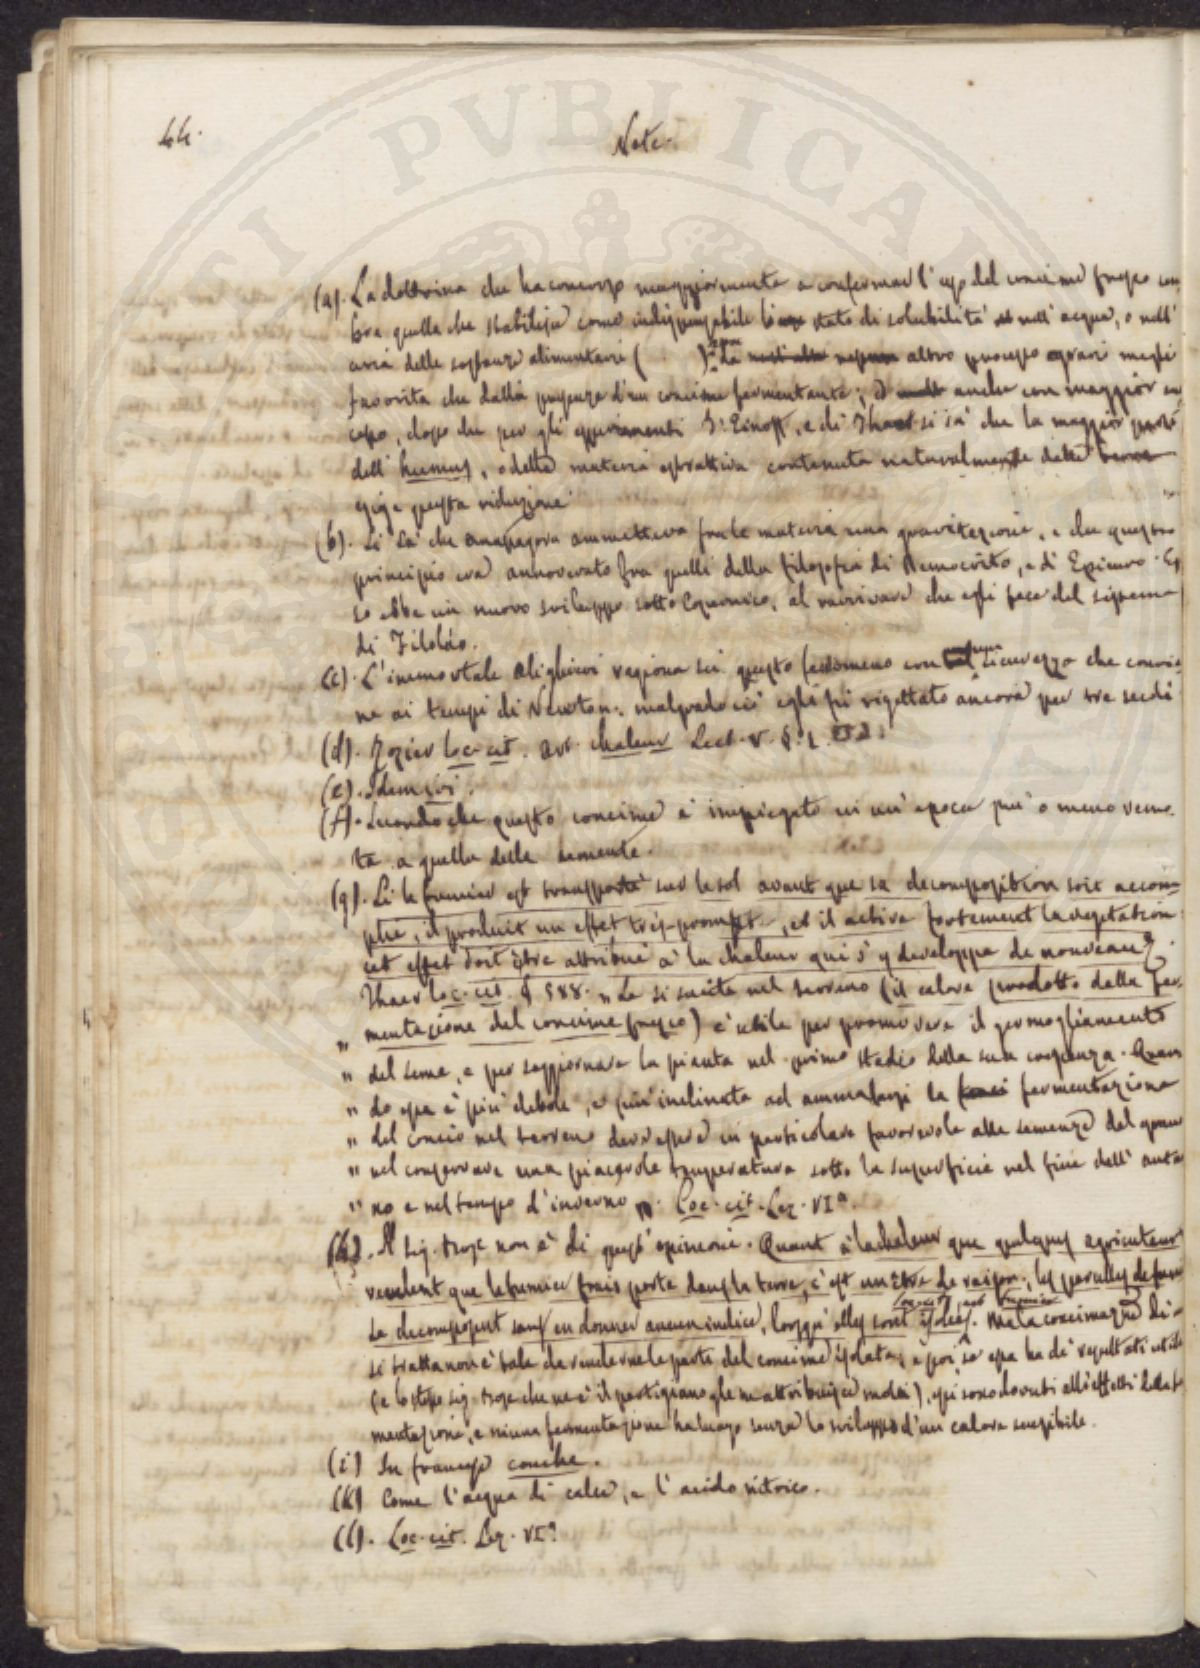 44.
Note.
(a). La dottrina che ha concorso maggiormente a confermar l' uso del concime fresco con
fora quella che stabilisce come indispensabile lo stato di solubilità nell' acqua, o nell'
aria delle sostanze alimentari ( ) altro processo messi
favorita che dalla presenza d'un concime fermentante; anche con maggior
capo, dopo che per gli esperimenti Einoff, e di Thaer si sà che la maggior parte
dell' humus, o della materia estrattiva contenuta naturalmente
esige questa riduzione.
(b). Si sà che Anassagora ammetteva fra le materia una gravitazione, e che questo
principio era annoverato fra quelli della filosofia di Democrito, e di Epicuro. Es
so ebbe un nuovo sviluppo sotto Copernico, al ravvivare che essi fece del sistema
di Filolao.
(c). L' immortale Alighieri ragiona su questo fenomeno con sicurezza che convie
ne ai tempi di Newton: malgrado ciò egli fù rigettato ancora per tre secoli
(d). Rozier loc. cit. Art. chaleur Sect. V. §. 1.
(e). Idem ivi.
(f). Secondo che questo concime è impiegato in un' epoca più o meno remo
ta a quella delle semente.
(g). Si le fumier est transporté sur le sol avant que sa decomposition soit accom-
plie, il produit un effet très-prompt, et il active fortement la vegetation
cet effet doit être attribué à la chaleur qui s' y developpe de nouveau
Thaer loc. cit. § 588. " La si suscita nel terreno (il calore prodotto dalla fer-
" mentazione del concime fresco) è utile per promovere il germogliamento
" del seme, e per la pianta nel primo stadio della sua crescenza. Quan
" do essa è più debole, e più inclinata ad la fermentazione
" del concio nel terreno dev' essere in particolare favorevole alle semenze del grano
" nel conservare una piacevole temperatura sotto la superficie nel fine dell' autu
" no e nel tempo d' inverno ". Loc. cit. Lez. VIª.
(h). Il Sig. non è di quest' opinione. Quant à la chaleur que quelques agriculteurs
veulent que le fumier frais porte dans la terre, c' est un être de raison, les parcelles de
se decomposent sans en donner aucun indice, lorsqu' elles sont isolées. Ma la concimazione di
si tratta non è tale da renderne le parti del concime isolate; e poi se essa ha de' resultati utili
(e lo stesso Sig. che ne è il partigiano gle ne attribuisce molti), essi sono dovuti alli effetti della fer
mentazione, e niuna fermentazione ha luogo senza lo sviluppo d' un calore sensibile.
(i) In francese couche.
(k) Come l' acqua di calce, e l' acido nitrico.
(l). Loc. cit. Lez. VIª.